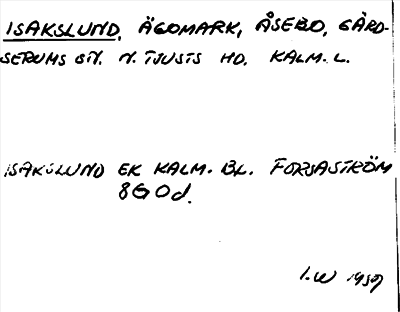 ISAKSLUND, ÄGOMARK, ÅSEBO, GÅRD-
SERUMS SN. N. TJUSTS HD. KALM. L.
ISAKSLUND EK KALM. BL. FORSASTRÖM
8G0d.
I.W 1959